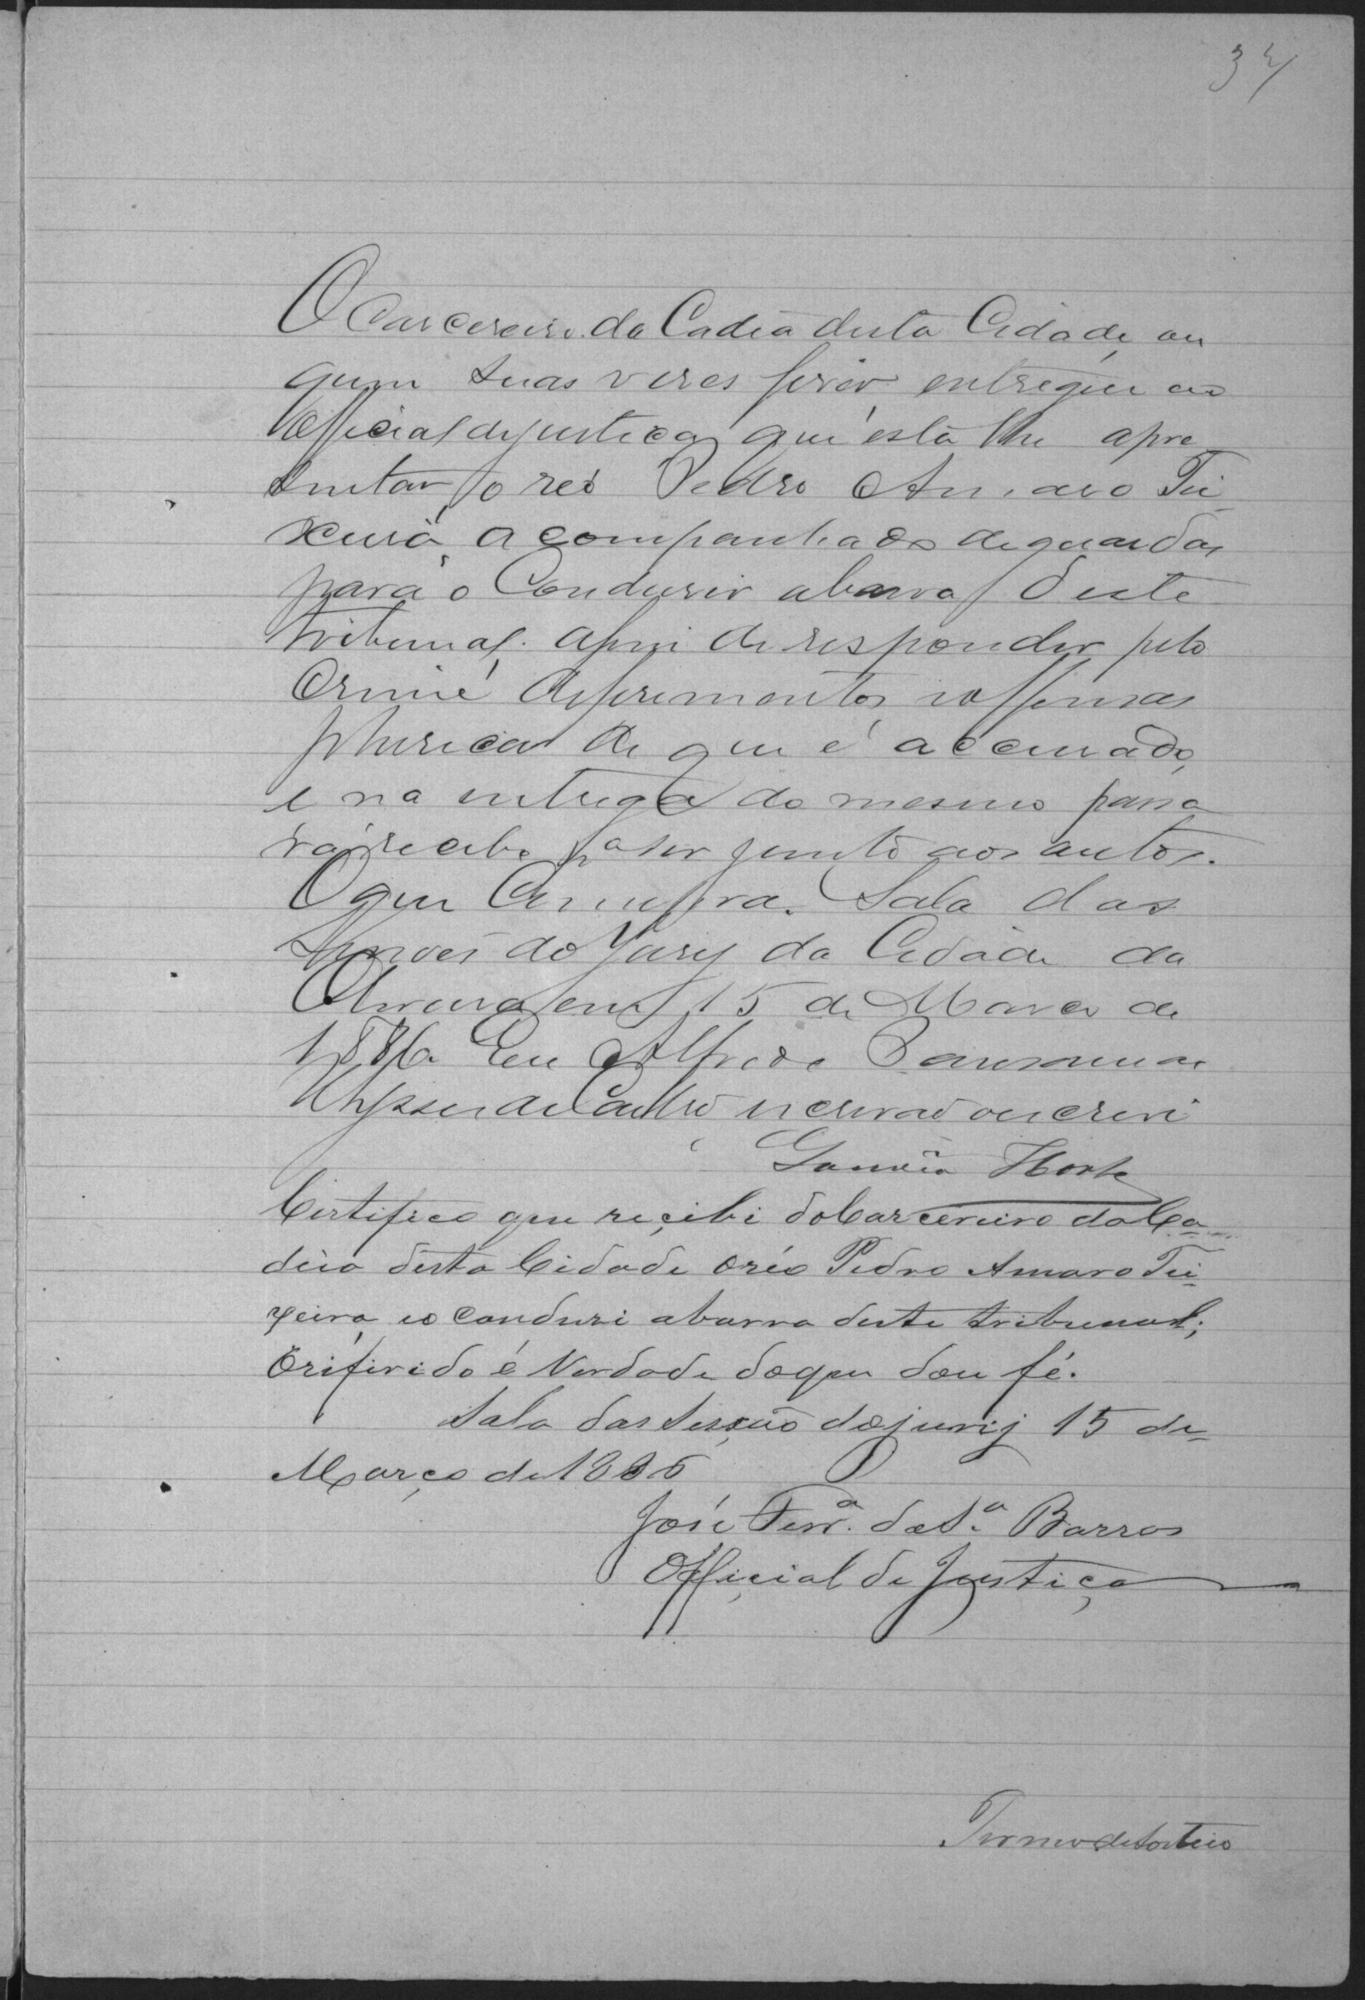 37
O Carcereiro da Cadea desta Cidade, ou
quem suas veses fizer, entregue ao
official de justiça, que esta lhe apre
sentar, o reo Pedro Amaro Tei
xeira, acompanhado de guardas
para o Condusir abarra deste
tribunal. afim de responder pelo
Crime de ferimentos e offensas
phisicas de que é accusado,
e na entrega do mesmo passa
rá recibo pª ser junto aos autos.
O que Cumpra. Sala das
Sessoes do Jury da Cidade da
em 15 de Março de
1886 Eu Alfredo
de Castro escrivao o escrevi
Horta
Certifico que recibi do Carcereiro da Ca
deia desta Cidade oréo Pedro Amaro Tei
xeira, eo condusi abarra deste tribunal;
Orifirido é Verdade doque dou fé.
Sala das Sessão do jurij 15 de
Março de 1886
José Ferrª. da Sª Barros
Official de Justiça
Termo de sorteio